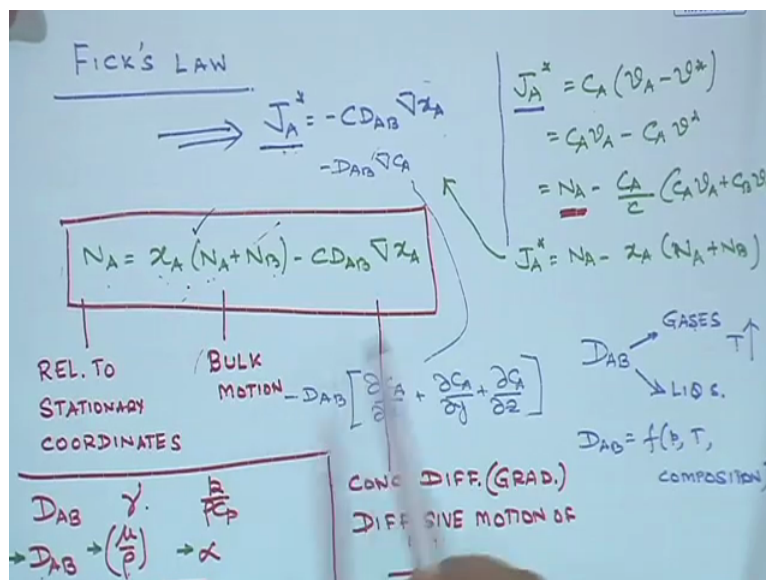 FICK'S LAW
⟹ J_A^* = -C D_AB ∇x_A
-D_AB ∇C_A
J_A^* = C_A (v_A - v^*)
= C_A v_A - C_A v^*
= N_A - C_A/C (C_A v_A + C_B v
J_A^* = N_A - x_A (N_A + N_B)
N_A = x_A (N_A + N_B) - C D_AB ∇x_A
REL. TO
STATIONARY
COORDINATES
BULK
MOTION
- D_AB [ + ∂C_A/∂y + ∂C_A/∂z ]
D_AB → GASES T↑
→ LIQS.
D_AB = f(p, T,
COMPOSITION)
CONC DIFF. (GRAD.)
DIFFUSIVE MOTION OF
D_AB γ. k/ρC_p
→ D_AB → (μ/ρ) → α